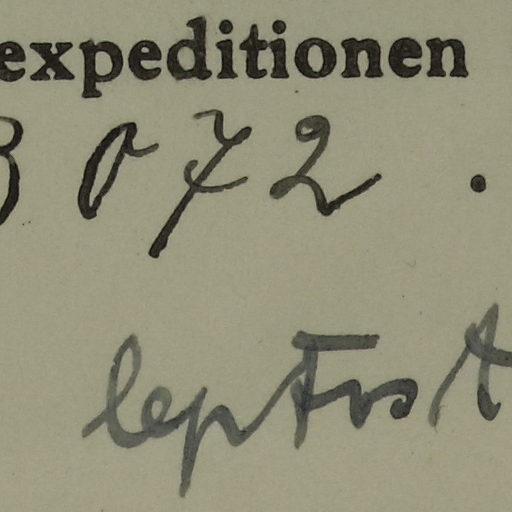 expeditionen
3072.
leptost